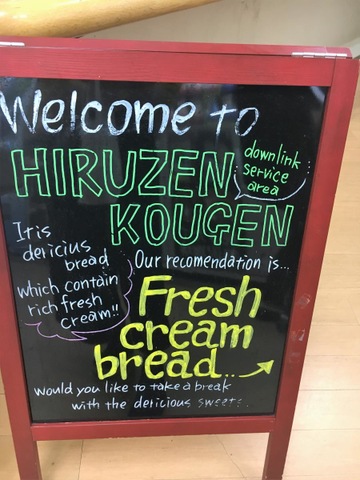 Welcome to
HIRUZEN
downlink
service
area
KOUGEN
It is
dericius
bread
which contain
rich fresh
cream!!
Our recomendation is...
Fresh
cream
bread...
would you like to take a break
with the dericious sweets.